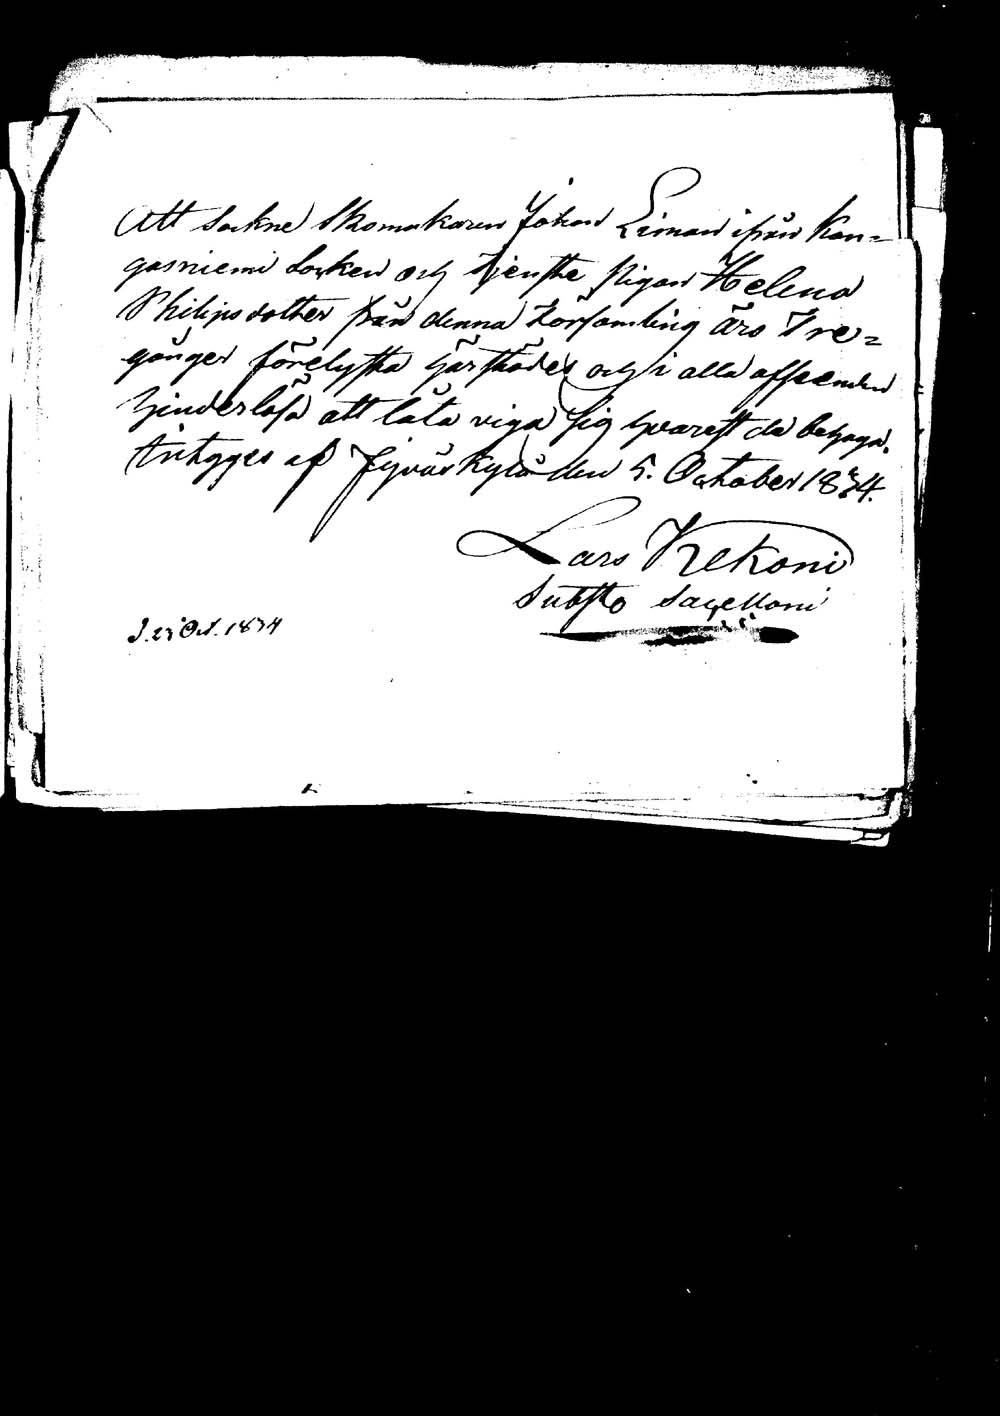 Att Sockne Skomakaren Johan Liman ifrån Kan=
gasniemi Socken och tjenste pigan Helena
Philipsdotter från denna Församling äro Tre=
gånger förelysta härstädes och i alla afseenden
hinderlösa att låta viga sig hvarest de behaga.
Intygges af Jyväskylä den 5. October 1834.
Lars Kekoni
Subst<sup>o</sup> Sacellani
23 Oct. 1834